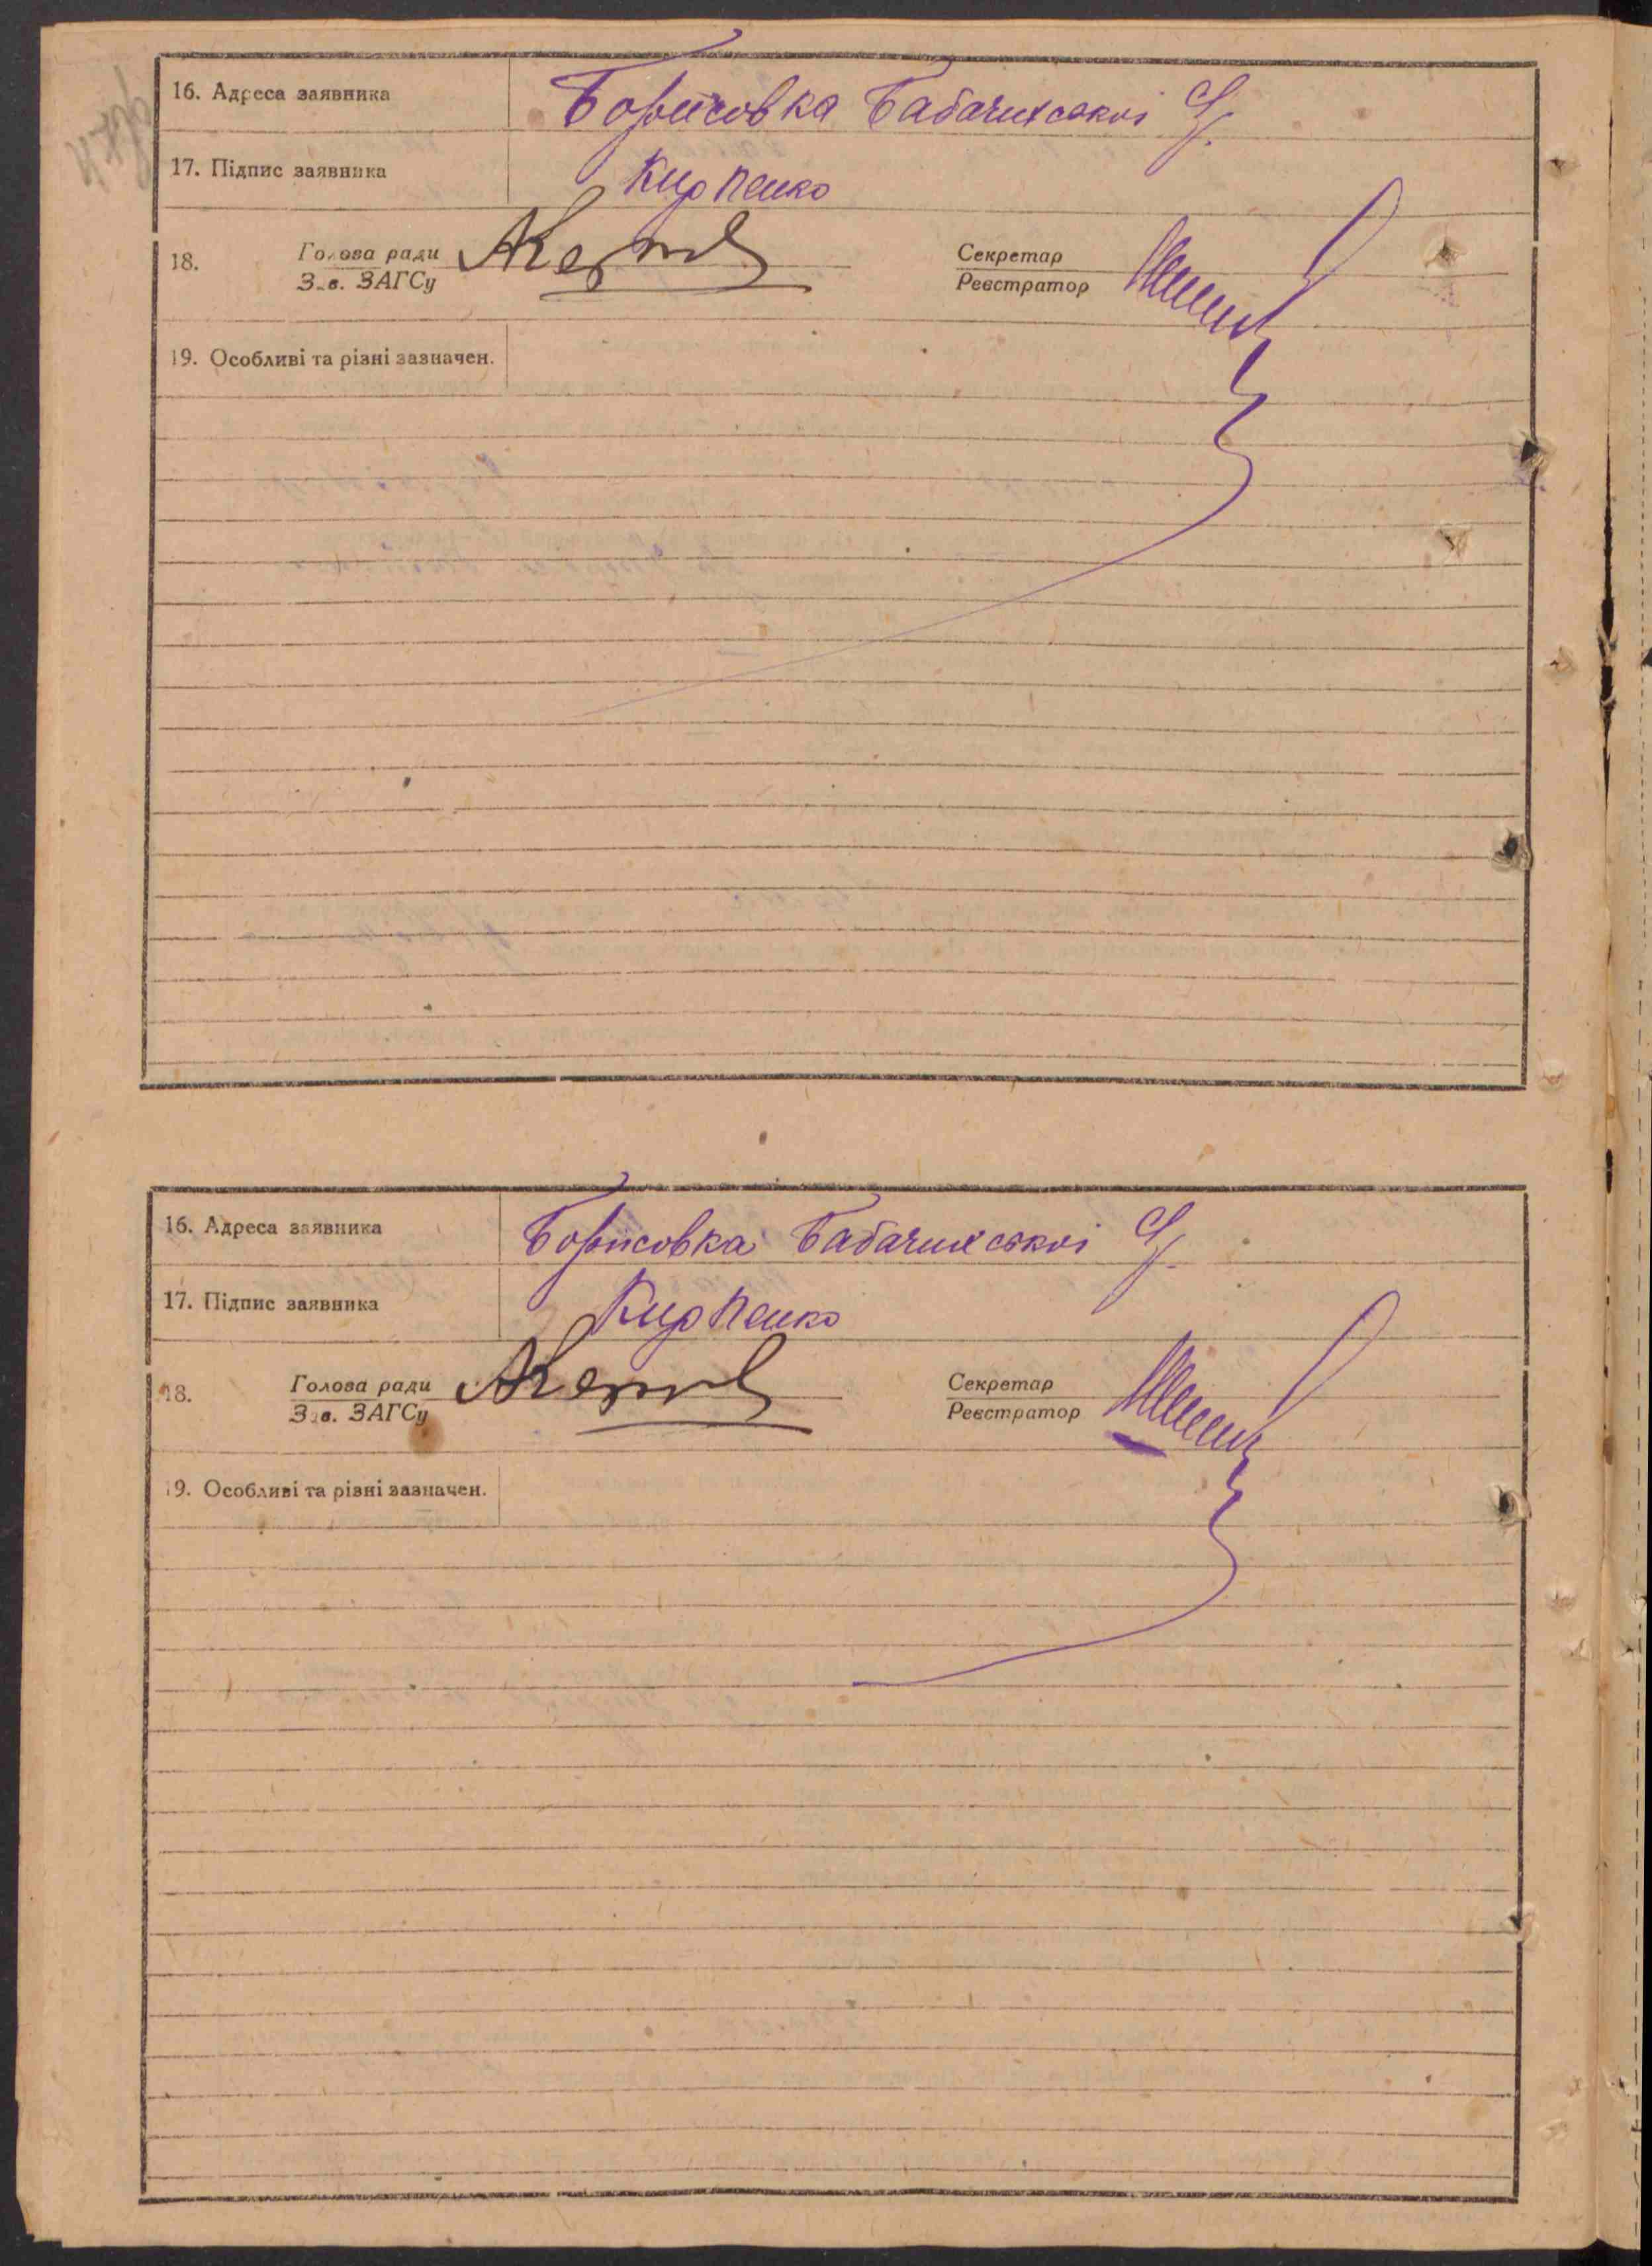 16. Адреса заявника Борисовка Бабачихської с/р.
17. Підпис заявника Кирпенко
18. Голова ради Секретар
Зав. ЗАГСу Реєстратор
19. Особливі та різні зазначен.
16. Адреса заявника Борисовка Бабачихської с/р.
17. Підпис заявника Кирпенко
18. Голова ради Секретар
Зав. ЗАГСу Реєстратор
19. Особливі та різні зазначен.